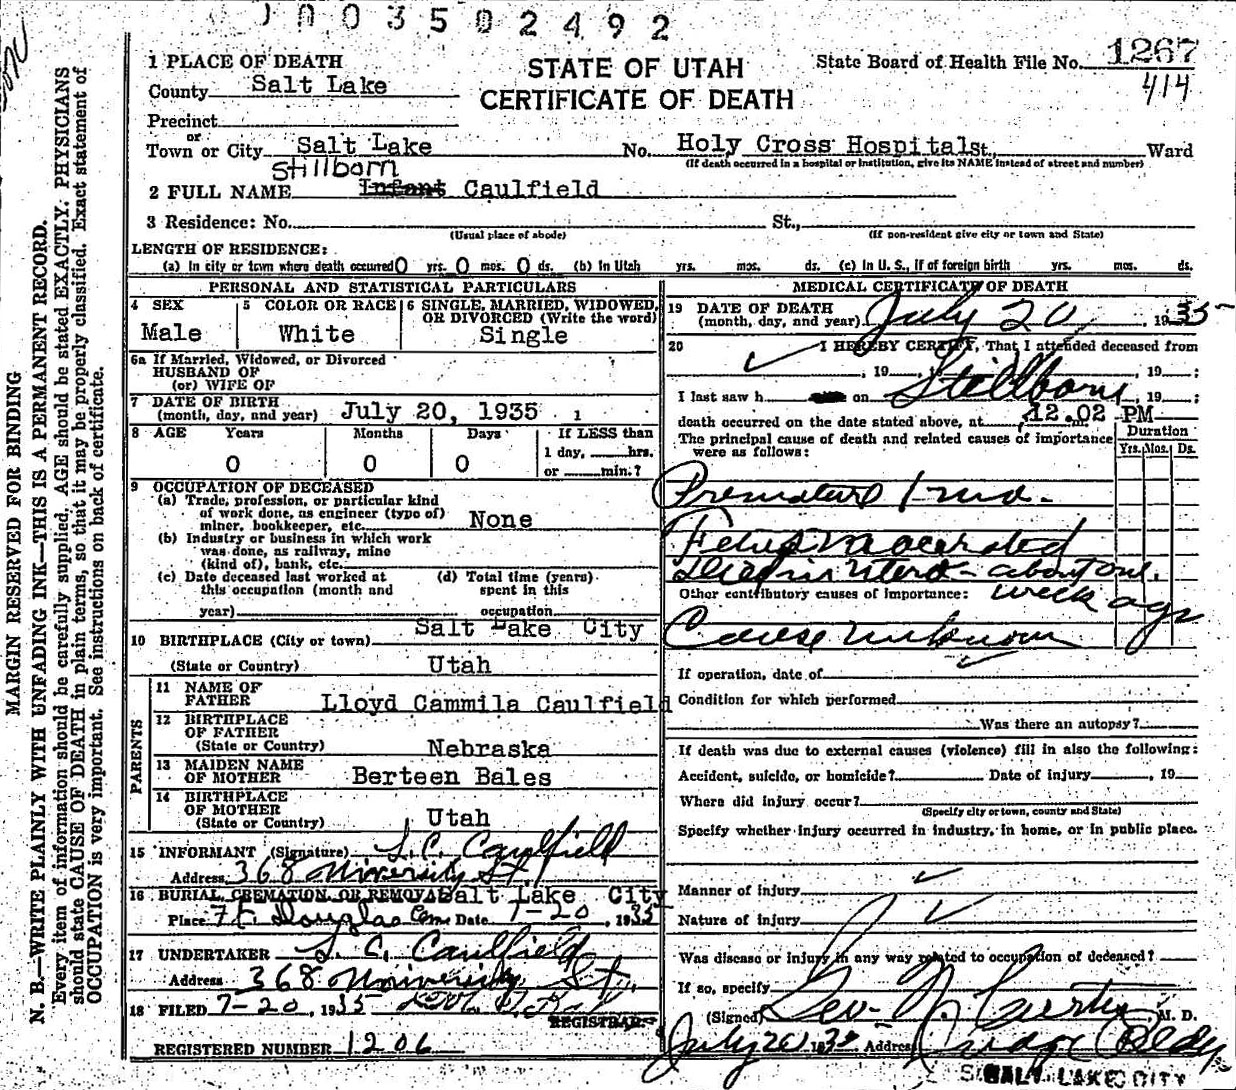 003502492
1 PLACE OF DEATH
County Salt Lake
Precinct
or
Town or City Salt Lake
STATE OF UTAH
CERTIFICATE OF DEATH
State Board of Health File No. 1267
414
No. Holy Cross Hospital St., Ward
(If death occurred in a hospital or institution, give its NAME instead of street and number)
Stillborn
2 FULL NAME Infant Caulfield
3 Residence: No. St.,
(Usual place of abode) (If non-resident give city or town and State)
LENGTH OF RESIDENCE:
(a) In city or town where death occurred 0 yrs. 0 mos. 0 ds. (b) In Utah yrs. mos. ds. (c) In U. S., if of foreign birth yrs. mos. ds.
PERSONAL AND STATISTICAL PARTICULARS
4 SEX 5 COLOR OR RACE 6 SINGLE, MARRIED, WIDOWED, OR DIVORCED (Write the word)
Male White Single
6a If Married, Widowed, or Divorced
HUSBAND OF
(or) WIFE OF
7 DATE OF BIRTH
(month, day, and year) July 20, 1935
8 AGE Years Months Days If LESS than
1 day, hrs.
0 0 0 or min.?
9 OCCUPATION OF DECEASED
(a) Trade, profession, or particular kind
of work done, as engineer (type of)
miner, bookkeeper, etc. None
(b) Industry or business in which work
was done, as railway, mine
(kind of), bank, etc.
(c) Date deceased last worked at
this occupation (month and
year)
(d) Total time (years)
spent in this
occupation
10 BIRTHPLACE (City or town) Salt Lake City
(State or Country) Utah
PARENTS
11 NAME OF
FATHER Lloyd Cammila Caulfield
12 BIRTHPLACE
OF FATHER
(State or Country) Nebraska
13 MAIDEN NAME
OF MOTHER Berteen Bales
14 BIRTHPLACE
OF MOTHER
(State or Country) Utah
15 INFORMANT (Signature) L. C. Caulfield
Address 368 University St.
16 BURIAL, CREMATION OR REMOVAL Salt Lake City
Place Ft. Douglas Cem Date 7-20, 1935
17 UNDERTAKER L. C. Caulfield
Address 368 University St.
18 FILED 7-20, 1935
REGISTRAR
REGISTERED NUMBER 1206
MEDICAL CERTIFICATE OF DEATH
19 DATE OF DEATH
(month, day, and year) July 20, 1935
20 I HEREBY CERTIFY, That I attended deceased from
, 19 , 19 ;
I last saw h on Stillborn, 19 ;
death occurred on the date stated above, at 12.02 PM
The principal cause of death and related causes of importance
were as follows:
Duration
Yrs. Mos. Ds.
Premature 1 mo.
Fetus macerated
Died in utero - about one
week ago
Other contributory causes of importance:
Cause unknown
If operation, date of
Condition for which performed
Was there an autopsy?
If death was due to external causes (violence) fill in also the following:
Accident, suicide, or homicide? Date of injury , 19
Where did injury occur?
(Specify city or town, county and State)
Specify whether injury occurred in industry, in home, or in public place.
Manner of injury
Nature of injury
Was disease or injury in any way related to occupation of deceased?
If so, specify
(Signed) Geo. N. Curtis M. D.
July 20 1935 Address Judge Bldg
SALT LAKE CITY
MARGIN RESERVED FOR BINDING
N. B.—WRITE PLAINLY WITH UNFADING INK—THIS IS A PERMANENT RECORD.
Every item of information should be carefully supplied. AGE should be stated EXACTLY. PHYSICIANS
should state CAUSE OF DEATH in plain terms, so that it may be properly classified. Exact statement of
OCCUPATION is very important. See instructions on back of certificate.